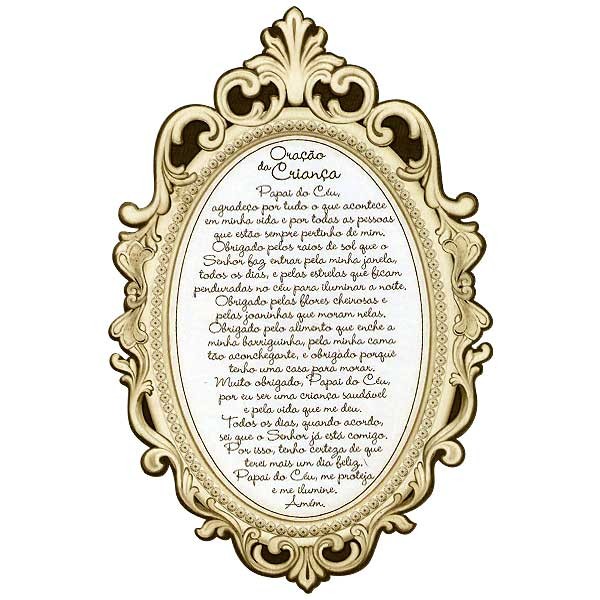 Oração
da Criança
Papai do Céu,
agradeço por tudo o que acontece
em minha vida e por todas as pessoas
que estão sempre pertinho de mim.
Obrigado pelos raios de sol que o
Senhor faz entrar pela minha janela,
todos os dias, e pelas estrelas que ficam
penduradas no céu para iluminar a noite.
Obrigado pelas flores cheirosas e
pelas joaninhas que moram nelas.
Obrigado pelo alimento que enche a
minha barriguinha, pela minha cama
tão aconchegante, e obrigado porque
tenho uma casa para morar.
Muito obrigado, Papai do Céu,
por eu ser uma criança saudável
e pela vida que me deu.
Todos os dias, quando acordo,
sei que o Senhor já está comigo.
Por isso, tenho certeza de que
terei mais um dia feliz.\
Papai do Céu, me proteja
e me ilumine.
Amém.